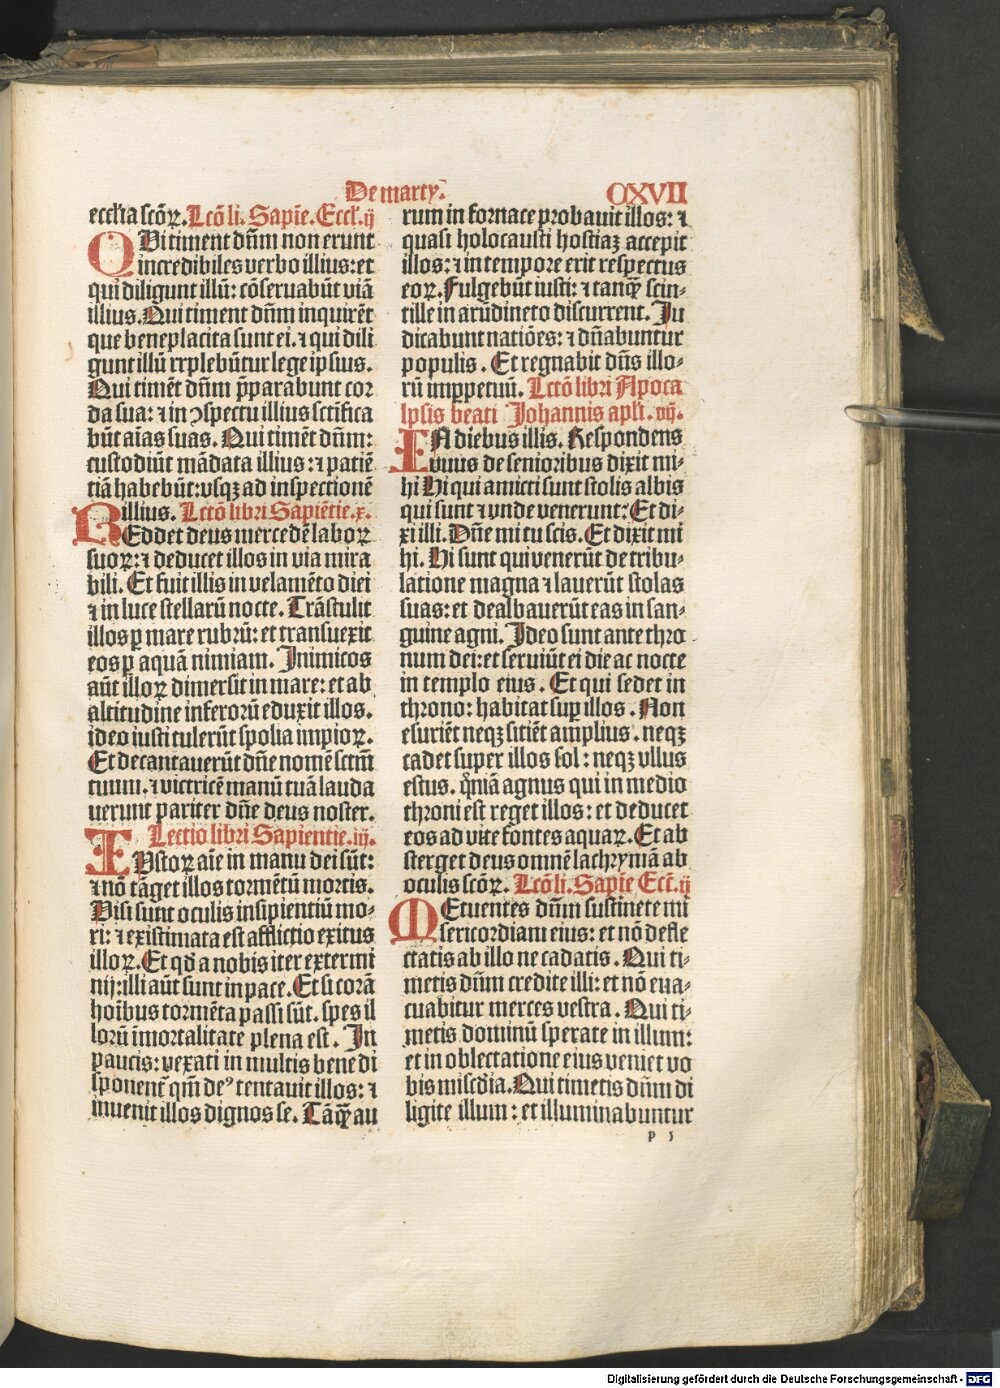 De marty.
CXVII
eccl'ia scōꝝ. Lcō li. Sapiē. Eccl'. ij
QVi timent dn̄m non erunt
incredibiles verbo illius: et
qui diligunt illū: cōseruabūt viā
illius. Qui timent dn̄m inquirēt
que beneplacita sunt ei. ⁊ qui dili
gunt illū rrplebūtur lege ipsius.
Qui timēt dn̄m p̄parabunt cor
da sua: ⁊ in ↄspectu illius sctifica
būt aīas suas. Qui timēt dn̄m:
custodiūt mādata illius: ⁊ patiē
tiā habebūt: vsqꝫ ad inspectionē
illius. Lctō libri Sapiētie. x.
REddet deus mercedē laboꝝ
suoꝝ: ⁊ deducet illos in via mira
bili. Et fuit illis in velamēto diei
⁊ in luce stellarū nocte. Trāstulit
illos ꝑ mare rubrū: et transuexit
eos ꝑ aquā nimiam. Inimicos
aūt illoꝝ dimersit in mare: et ab
altitudine inferorū eduxit illos.
ideo iusti tulerūt spolia impioꝝ.
Et decantauerūt dn̄e nomē sctm̄
tuum. ⁊ victricē manū tuā lauda
uerunt pariter dn̄e deus noster.
Lectio libri Sapientie. iij.
IVstoꝝ aīe in manu dei sūt:
⁊ nō tāget illos tormētū mortis.
Visi sunt oculis insipientiū mo-
ri: ⁊ existimata est afflictio exitus
illoꝝ. Et qd̄ a nobis iter extermi
nij: illi aūt sunt in pace. Et si corā
hoībus tormēta passi sūt. spes il
lorū īmortalitate plena est. In
paucis: vexati in multis bene di
sponent᷑ qm̄ deꝰ tentauit illos: ⁊
inuenit illos dignos se. Tāqꝫ̄ au
rum in fornace probauit illos: ⁊
quasi holocausti hostiaꝫ accepit
illos: ⁊ in tempore erit respectus
eoꝝ. Fulgebūt iusti: ⁊ tanqꝫ̄ scin-
tille in arūdineto discurrent. Iu
dicabunt natiōes: ⁊ dn̄abuntur
populis. Et regnabit dn̄s illo-
rū imꝑpetuū. Lctō libri Apoca
lypsis beati Johannis apl'i. vij.
IN diebus illis. Respondens
vnus de senioribus dixit mi-
hi Hi qui amicti sunt stolis albis
qui sunt ⁊ vnde venerunt: Et di-
xi illi. Dn̄e mi tu scis. Et dixit mi
hi. Hi sunt qui venerūt de tribu-
latione magna ⁊ lauerūt stolas
suas: et dealbauerūt eas in san-
guine agni. Ideo sunt ante thro
num dei: et seruiūt ei die ac nocte
in templo eius. Et qui sedet in
throno: habitat suꝑ illos. Non
esuriēt neqꝫ sitiēt amplius. neqꝫ
cadet super illos sol: neqꝫ vllus
estus. qm̄iā agnus qui in medio
throni est reget illos: et deducet
eos ad vite fontes aquaꝝ. Et ab
sterget deus omnē lachrymā ab
oculis scōꝝ. Lcō li. Sapiē Ecc̄. ij
MEtuentes dn̄m sustinete mi
sericordiam eius: et nō defle
ctatis ab illo ne cadatis. Qui ti-
metis dn̄m credite illi: et nō eua-
cuabitur merces vestra. Qui ti-
metis dominū sperate in illum:
et in oblectatione eius veniet vo
bis miscd̄ia. Qui timetis dn̄m di
ligite illum: et illuminabuntur
p 5
Digitalisierung gefördert durch die Deutsche Forschungsgemeinschaft - DFG